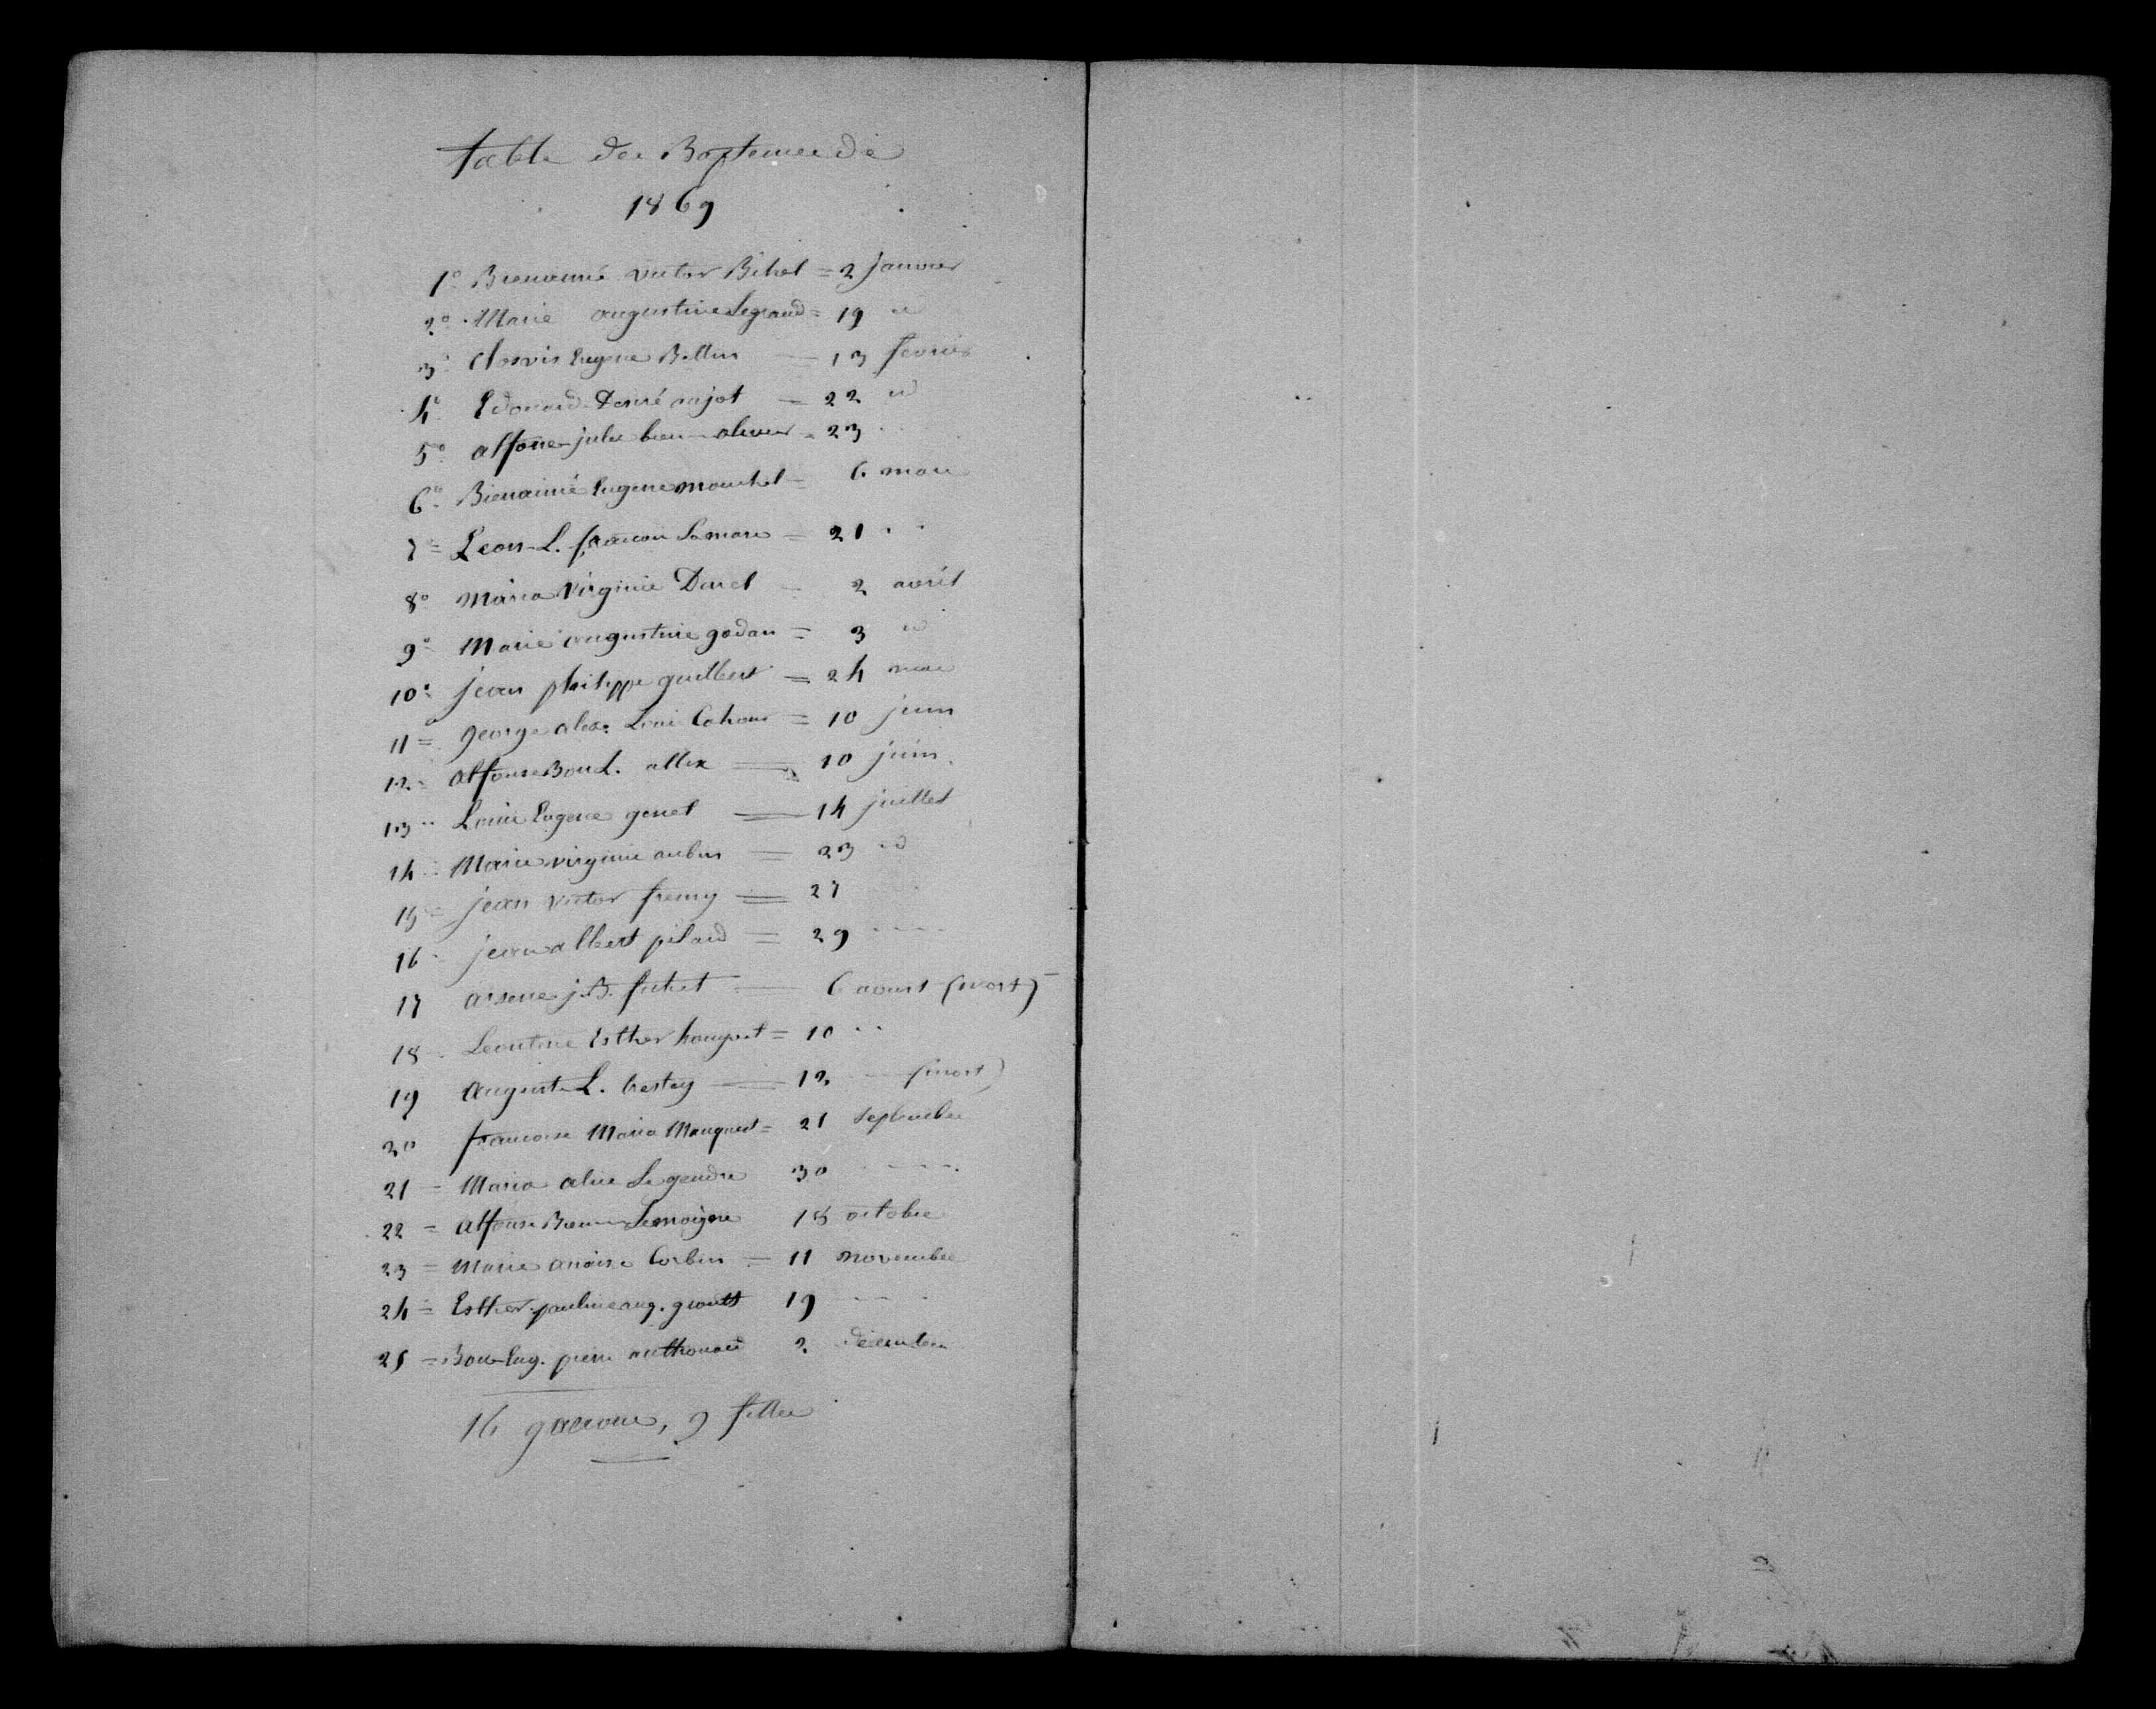 table des Baptemes de
1869
1° Bienaimé victor Bihel = 2 janvier
2° Marie augustine Legrand = 19 id
3° Clovis Eugene Bellin — 13 fevrier
4° Edouard Desiré anjot — 22 id
5° alfonse jules bien- olivier = 23 ..
6° Bienaimé Eugene mouchel = 6 mars
7 = Leon-L. francois Lamare = 21 ..
8° Maria Virginie Durel — 2 avril
9° Marie augustine godan = 3 id
10° jean philippe guilbert = 24 mai
11 = george alex. Louis Cahour = 10 juin
12 = alfonse Bon L. allix = 10 juin
13 = Louis Eugene genel = 14 juillet
14 = Marie virginie aubin = 23 id
15 = jean victor fremy = 27
16 - jean albert pilard = 29 ----
17 arsene j.B. fichet — 6 aoust (mort)
18 - Leontine Esther houguet = 10 ..
19 auguste L. Crestey — 12 — (mort)
20 francoise Maria Mauguest = 21 septembre
21 - Maria aline Legendre 30 ----
22 = alfonse Bien- Lemoigne 18 octobre
23 = Marie anaise Corbin = 11 novembre
24 = Esther pauline aug. groult 19 ----
25 = Bon-Eug. pierre anthouard 2 décembre
16 garcons, 9 filles